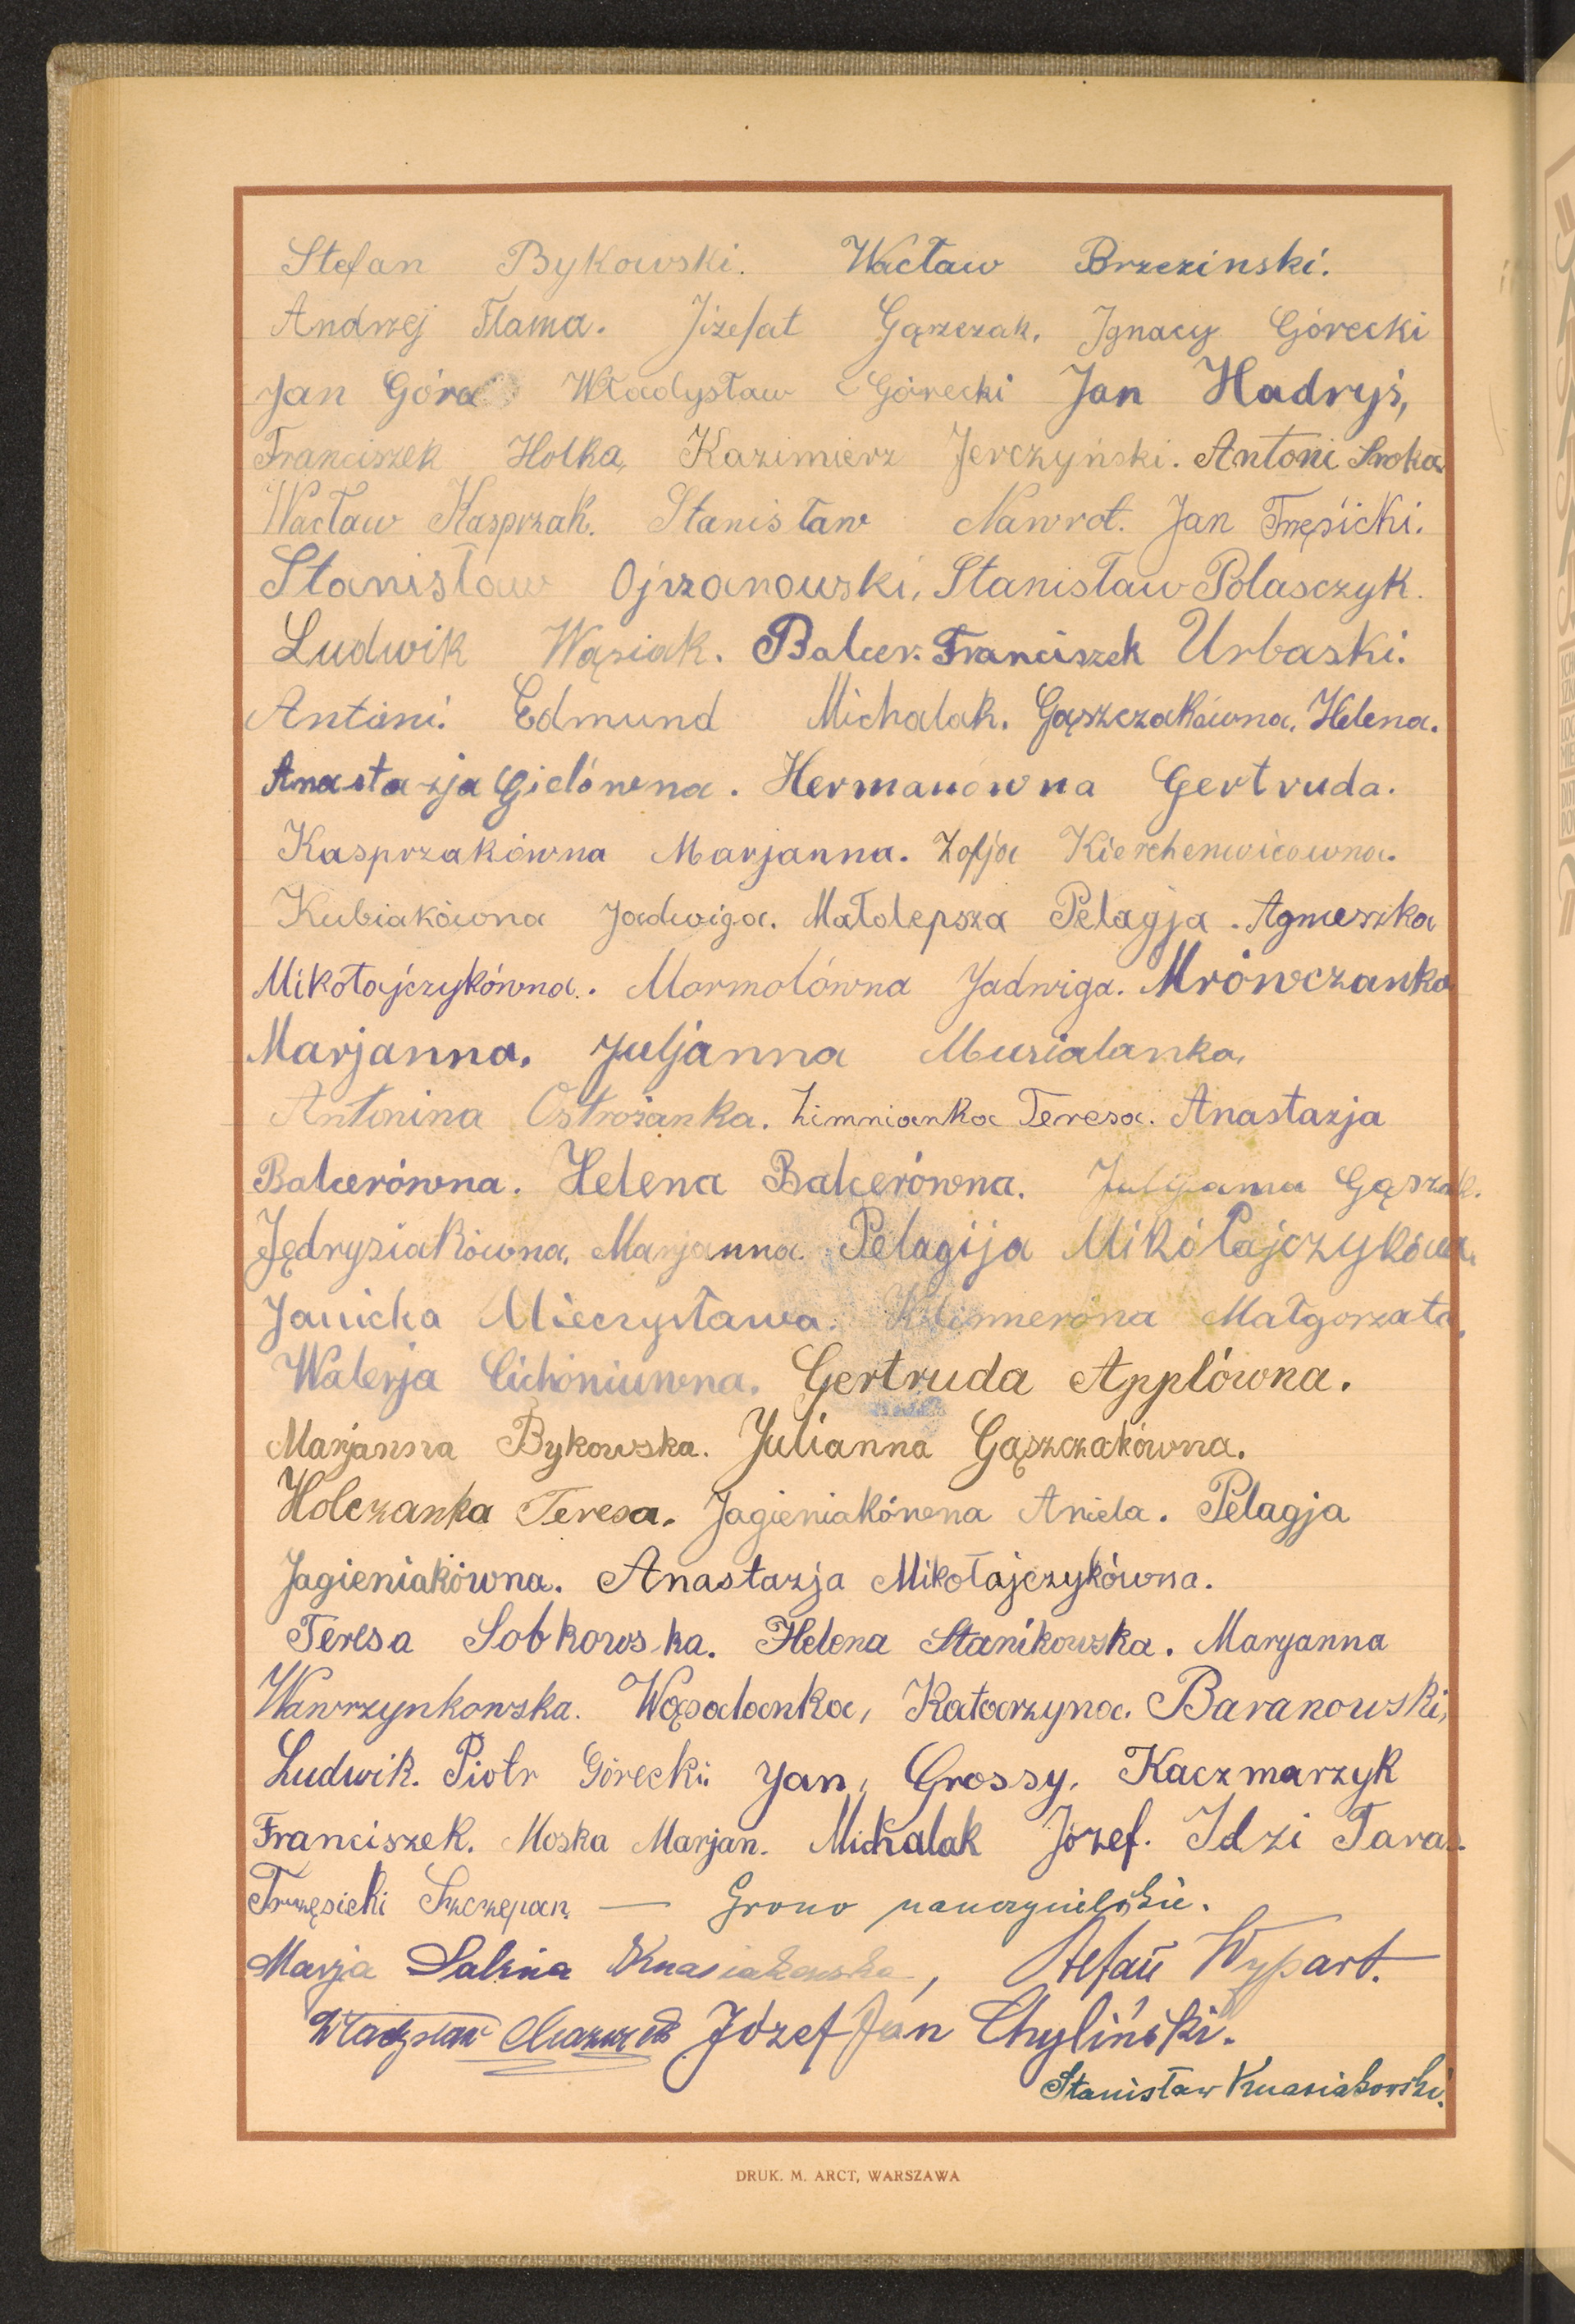 Stefan Bykowski. Wacław Brzezinski.
Andrzej Flama. Józefat Gąszczak. Ignacy Górecki
Jan Góra Władysław Górecki Jan Hadryś,
Franciszek Holka, Kazimierz Jerczyński. Antoni Sroka.
Wacław Kasprzak. Stanisław Nawrot. Jan Trzęsicki.
Stanisław Ojrzanowski, Stanisław Polasczyk.
Ludwik Wąsiak. Balcer. Franciszek Urbaski.
Antoni. Edmund Michalak. Gąszczakówna. Helena.
Anastazja Gielówna. Hermanówna Gertruda.
Kasprzakówna Marjanna. Zofja
Kubiakówna Jadwiga. Małolepsza Pelagja. Agnieszka
Mikołajczykówna. Marmolówna Jadwiga. Mrówczanka
Marjanna. Juljanna Musialanka,
Antonina Ostrożanka. Zimnianka Teresa. Anastazja
Balcerówna. Helena Balcerówna.
Jędrysiakówna, Marjanna. Pelagija
Janicka Mieczysława. Małgorzata.
Walerja Cichoniuwna. Gertruda Applówna.
Marjanna Bykowska. Julianna Gąszczakówna.
Holczanka Teresa. Jagieniakówna Aniela. Pelagja
Jagieniakówna. Anastazja Mikołajczykówna.
Teresa Sobkowska. Helena Stanikowska. Maryanna
Wawrzynkowska. Wąsalanka, Katarzyna. Baranowski,
Ludwik. Piotr Górecki. Jan, Grossy, Kaczmarzyk
Franciszek. Moska Marjan. Michalak Józef. Idzi Taras.
Trzęsicki Szczepan. — Grono nauczycielskie.
Marja Salina Kmasiakowska, Stefan Wypart.
Władysław Józef Jan Chyliński.
Stanisław Kmasiakowski.
DRUK. M. ARCT, WARSZAWA